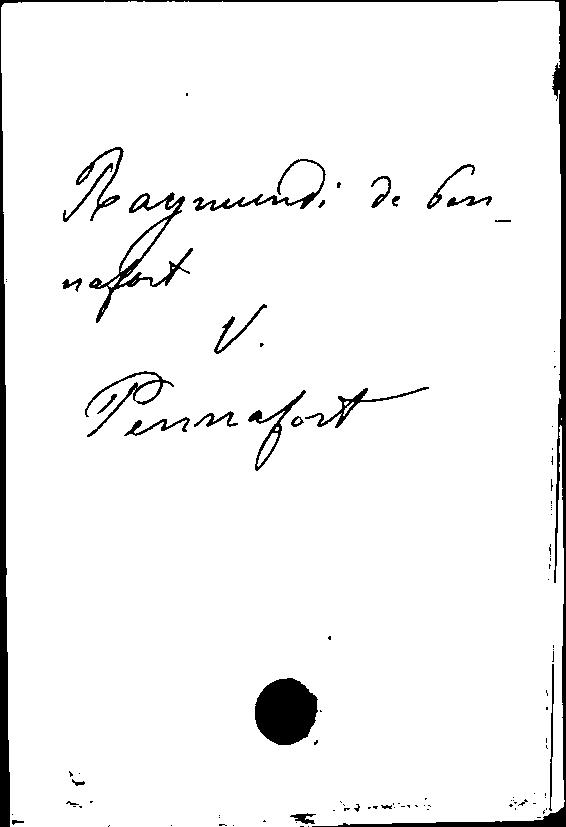 Raymundi de Pen-
nafort
V.
Pennafort